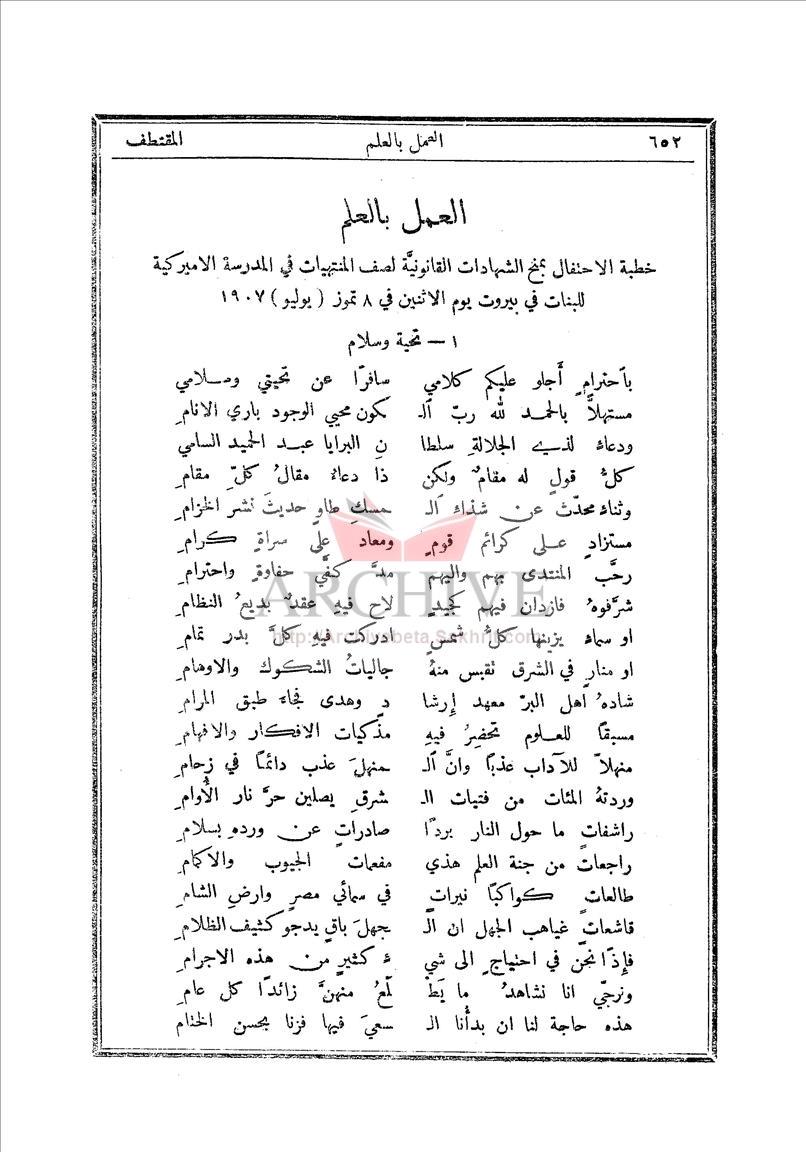 ٦٥٢ العمل بالعلم المقتطف
العمل بالعلم
خطبة الاحتفال بمنح الشهادات القانونيَّة لصف المنتهيات في المدرسة الاميركية
للبنات في بيروت يوم الاثنين في ٨ تموز (يوليو) ١٩٠٧
١ — تحية وسلام
باحترامٍ أجلو عليكم كلامي سافرًا عن تحيتي وسلامي
مستهلاً بالحمد لله ربّ الـ ـكون محيي الوجود باري الانامِ
ودعاءٍ لذي الجلالةِ سلطا نِ البرايا عبد الحميد السامي
كلُّ قولٍ له مقامٌ ولكن ذا دعاءٌ مقالُ كلّ مقامِ
وثناء محدّث عن شذاء الـ ـمسكِ طاوٍ حديثَ نشر الخزامِ
مستزادٍ على كرائم قومٍ ومعاد على سراةٍ كرامِ
رحَّب المنتدى بهم واليهم مدَّ كفَّي حفاوةٍ واحترامِ
شرَّفوهُ فازدان فيهم كجيدٍ لاح فيهِ عقدٌ بديعُ النظامِ
او سماء يزينها كلُّ شمسٍ ادركت فيهِ كلَّ بدر تمامِ
او منارٍ في الشرق نقبس منهُ جالياتُ الشكوك والاوهامِ
شادهُ اهل البرّ معهد إرشا دٍ وهدى فجاء طبق المرامِ
مسبقًا للعلوم تحضِرُ فيهِ مذكيات الافكار والافهامِ
منهلاً للآداب عذبًا وانَّ الـ ـمنهلَ عذب دائمًا في زحامِ
وردتهُ المئات من فتيات الـ شرقِ يصلين حرَّ نار الأُوامِ
راشفاتٍ ما حول النار بردًا صادراتٍ عن ورده بسلامِ
راجعاتٍ من جنة العلم هذي مفعمات الجيوب والاكمامِ
طالعاتٍ كواكبًا نيراتٍ في سمائي مصرٍ وارض الشامِ
قاشعاتٍ غياهب الجهل ان الـ ـجهلَ باقٍ يدجو كثيف الظلامِ
فإذًا نحن في احتياجٍ الى شي ءٍ كثيرٍ من هذه الاجرامِ
ونرجّي انا نشاهدُ ما يَطْ لَعُ منهنَّ زائدًا كل عامِ
هذه حاجة لنا ان بدأنا الـ ـسعيَ فيها فزنا بحسن الختامِ
ARCHIVE
http://Archivebeta.Sakhrit.com